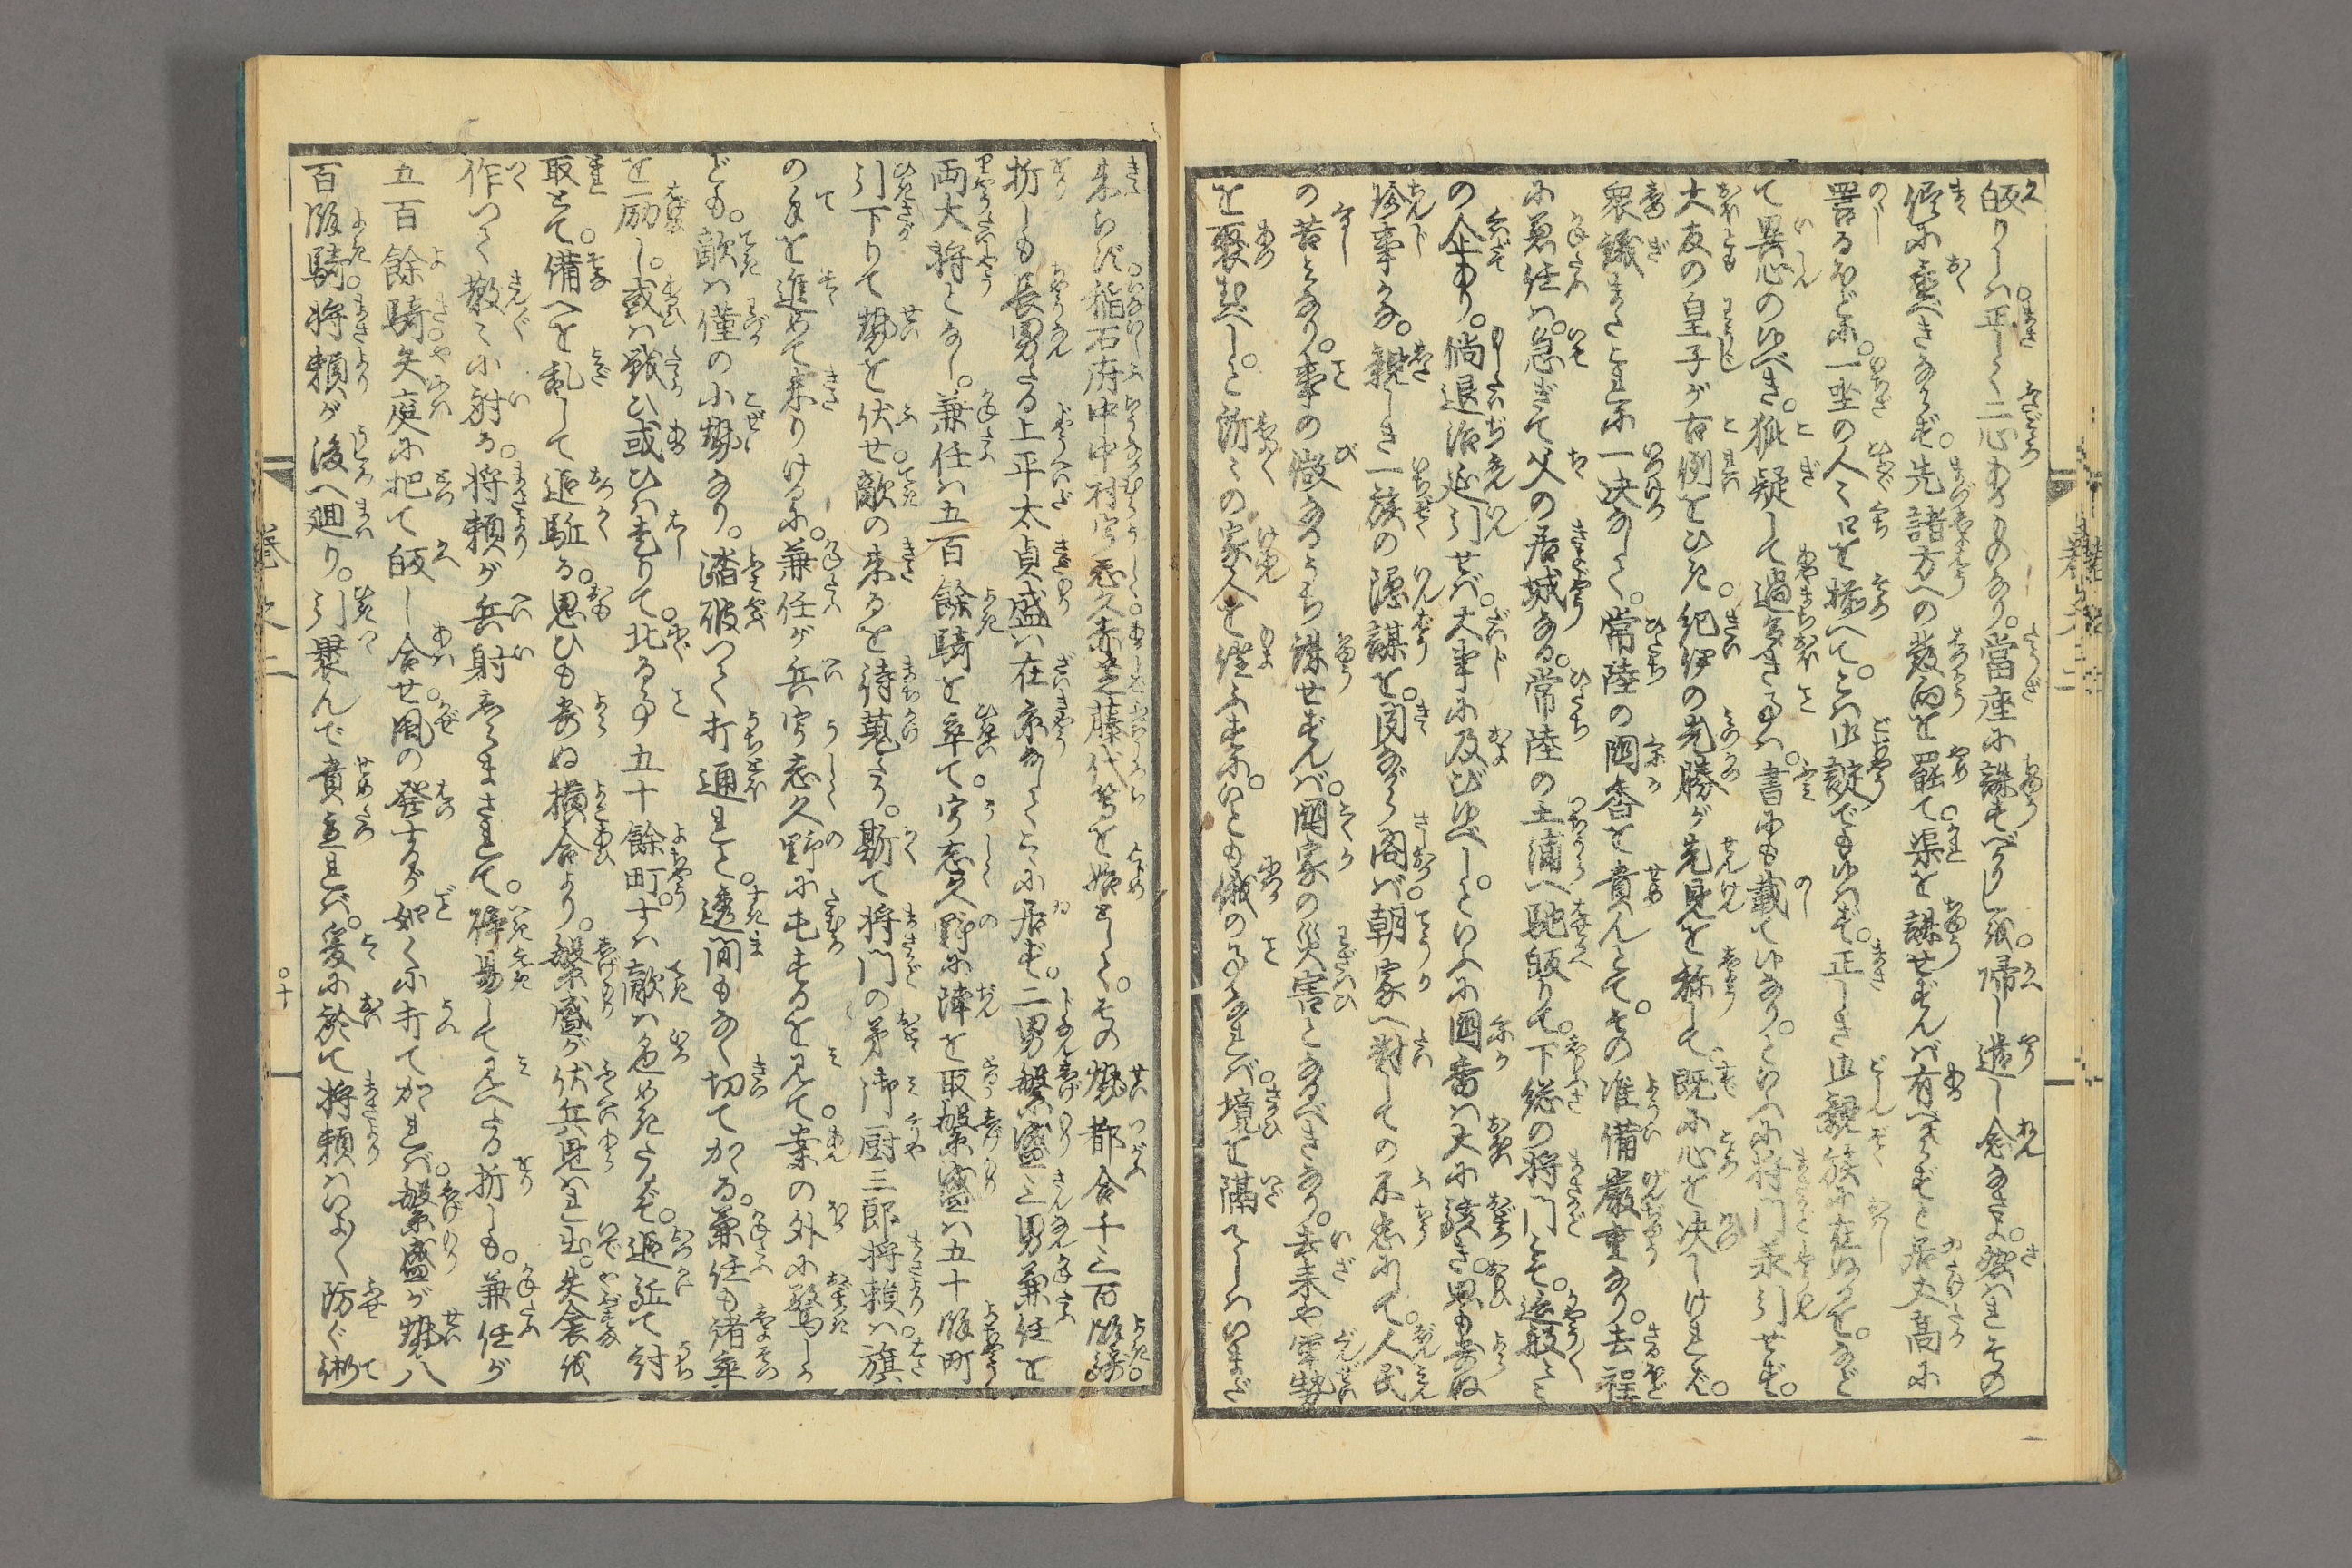 皈りしは。正しく二心あるものなり。當座に誅すべかりしを。帰し造し念なさよ。然はれその
儘に棄べきならず。先諸方への敷向を罷て。渠を誅せずんば有べからずと居丈高に
詈るほどに。一坐の人々口を揃へて。こは御諚でもゆはず。正しき御親族に在ながら。など
て異心のゆべき。狐疑して過多き事は。書にも載てゆなり。といへ将門承引せず。
大友の皇子が古例をひき。紀伊の先勝が先見を称して。既に心を决しければ。
衆議またこれに一决なして。常陸の國香を責んとて。その准備嚴重なり。去程
に兼任は。急ぎて父の居城なる。常陸の土浦へ馳皈りて。下総の将門こそ。这般々々
の企あり。倘退治延引せば。大事に及びゆべし。といふに國香は大に駭き。思も寄ぬ
珍事かな。親しき一族の隠謀を。聞ながら閣ば。朝家へ對しての不忠にして。人民
の苦となり。事の微なるうち誅せずんば。國家の災害となるべきなり。去来や軍勢
を聚むべしと。所々の家人を促ふすに。いとも俄の事なれば。境を隔てしはいまだ
来らず。稲石府中中村宇志久赤芝藤代等を始として。その勢都合千三百餘騎。
折しも長男なる上平太貞盛は在京なしてここに居ず。二男繁盛三男兼任を
両大将となし。兼任は五百餘騎を率て宇志久野に陣を取。繁盛は五十餘町
引下りて勢を伏せ。敵の来るを待蒐たり。斯て将門の弟御厨三郎将頼は。旗
の手を進めて来りけるに。兼任が兵宇志久野に屯するを見て。案の外に驚しか
ども。敵は僅の小勢なり。踏破つて打通れと。透間もなく切てかゝる。兼任も諸卒
を励し。或は戦ひ或ひは走りて。北る事五十餘町。すは敵は色めきたるぞ。追詰て討
取とて。備へを乱して追駈る。思ひも寄ぬ横合より。繁盛が伏兵見はれ出。矢衾を
作つて散々に射る。将頼が兵射しらまされて。辟易して見へたる折しも。兼任が
五百餘騎矢庭に把て皈し合せ。風の發するが如くに打てかゝれば。繁盛が勢八
百餘騎。将頼が後へ廻り。引裹んで責立れば。爰に於て将頼はいよ〱防ぐ術
巻之二
〇十